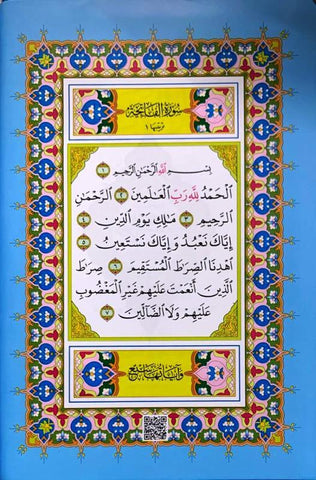 سُورَةُ الفَاتِحَةِ
ترتيبها ١
بِسْمِ اللَّهِ الرَّحْمَٰنِ الرَّحِيمِ ١
الْحَمْدُ لِلَّهِ رَبِّ الْعَالَمِينَ ٢ الرَّحْمَٰنِ
الرَّحِيمِ ٣ مَالِكِ يَوْمِ الدِّينِ ٤
إِيَّاكَ نَعْبُدُ وَإِيَّاكَ نَسْتَعِينُ ٥
اهْدِنَا الصِّرَاطَ الْمُسْتَقِيمَ ٦ صِرَاطَ
الَّذِينَ أَنْعَمْتَ عَلَيْهِمْ غَيْرِ الْمَغْضُوبِ
عَلَيْهِمْ وَلَا الضَّالِّينَ ٧
وَآيَاتُهَا سَبْعٌ